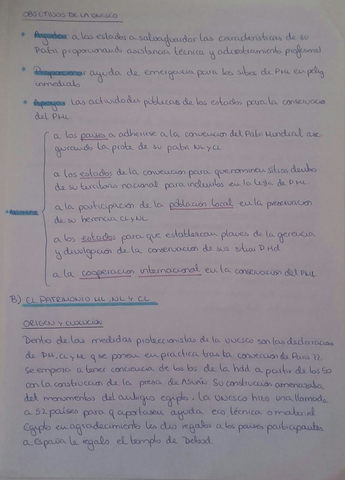 OBJETIVOS DE LA UNESCO
Ayudar a los estados a salvaguardar las características de su
Patri proporcionando asistencia técnica y adiestramiento profesional
Proporcionar ayuda de emergencia para los sitios de PML en pelig
inmediato
Apoyar las actividades públicas de los estados para la conservación
del PML
a los países a adherirse a la convención del Patri Mundial ase
gurando la prote de su patrio NL y CL
a los estados de la convención para que nominen sitios dentro
de su territorio nacional para incluirlos en la lista de PML
a la participación de la población local en la preservación
de su herencia CL y NL
a los estados para que establezcan planes de la gerencia
y divulgación de la conservación de sus sitios
a la cooperación internacional en la conservación del PML
B) EL PATRIMONIO ML, NL Y CL
ORIGEN Y EVOLUCIÓN
Dentro de las medidas proteccionales de la UNESCO son las declaracion
de PM, CL y NL que ponen en practica tras la convención de París 72.
Se empezo a tener conciencia de los de la hdd a partir de los 50
con la construcción de la presa de Asuán. Su construcción amenazaba
del monumentos del antiguo egipto. La UNESCO hizo una llamada
a 52 países para q aportasen ayuda eco técnica o material
Egipto en agradecimiento les dio regalos a los países participantes
a España le regalo el templo de Debod.